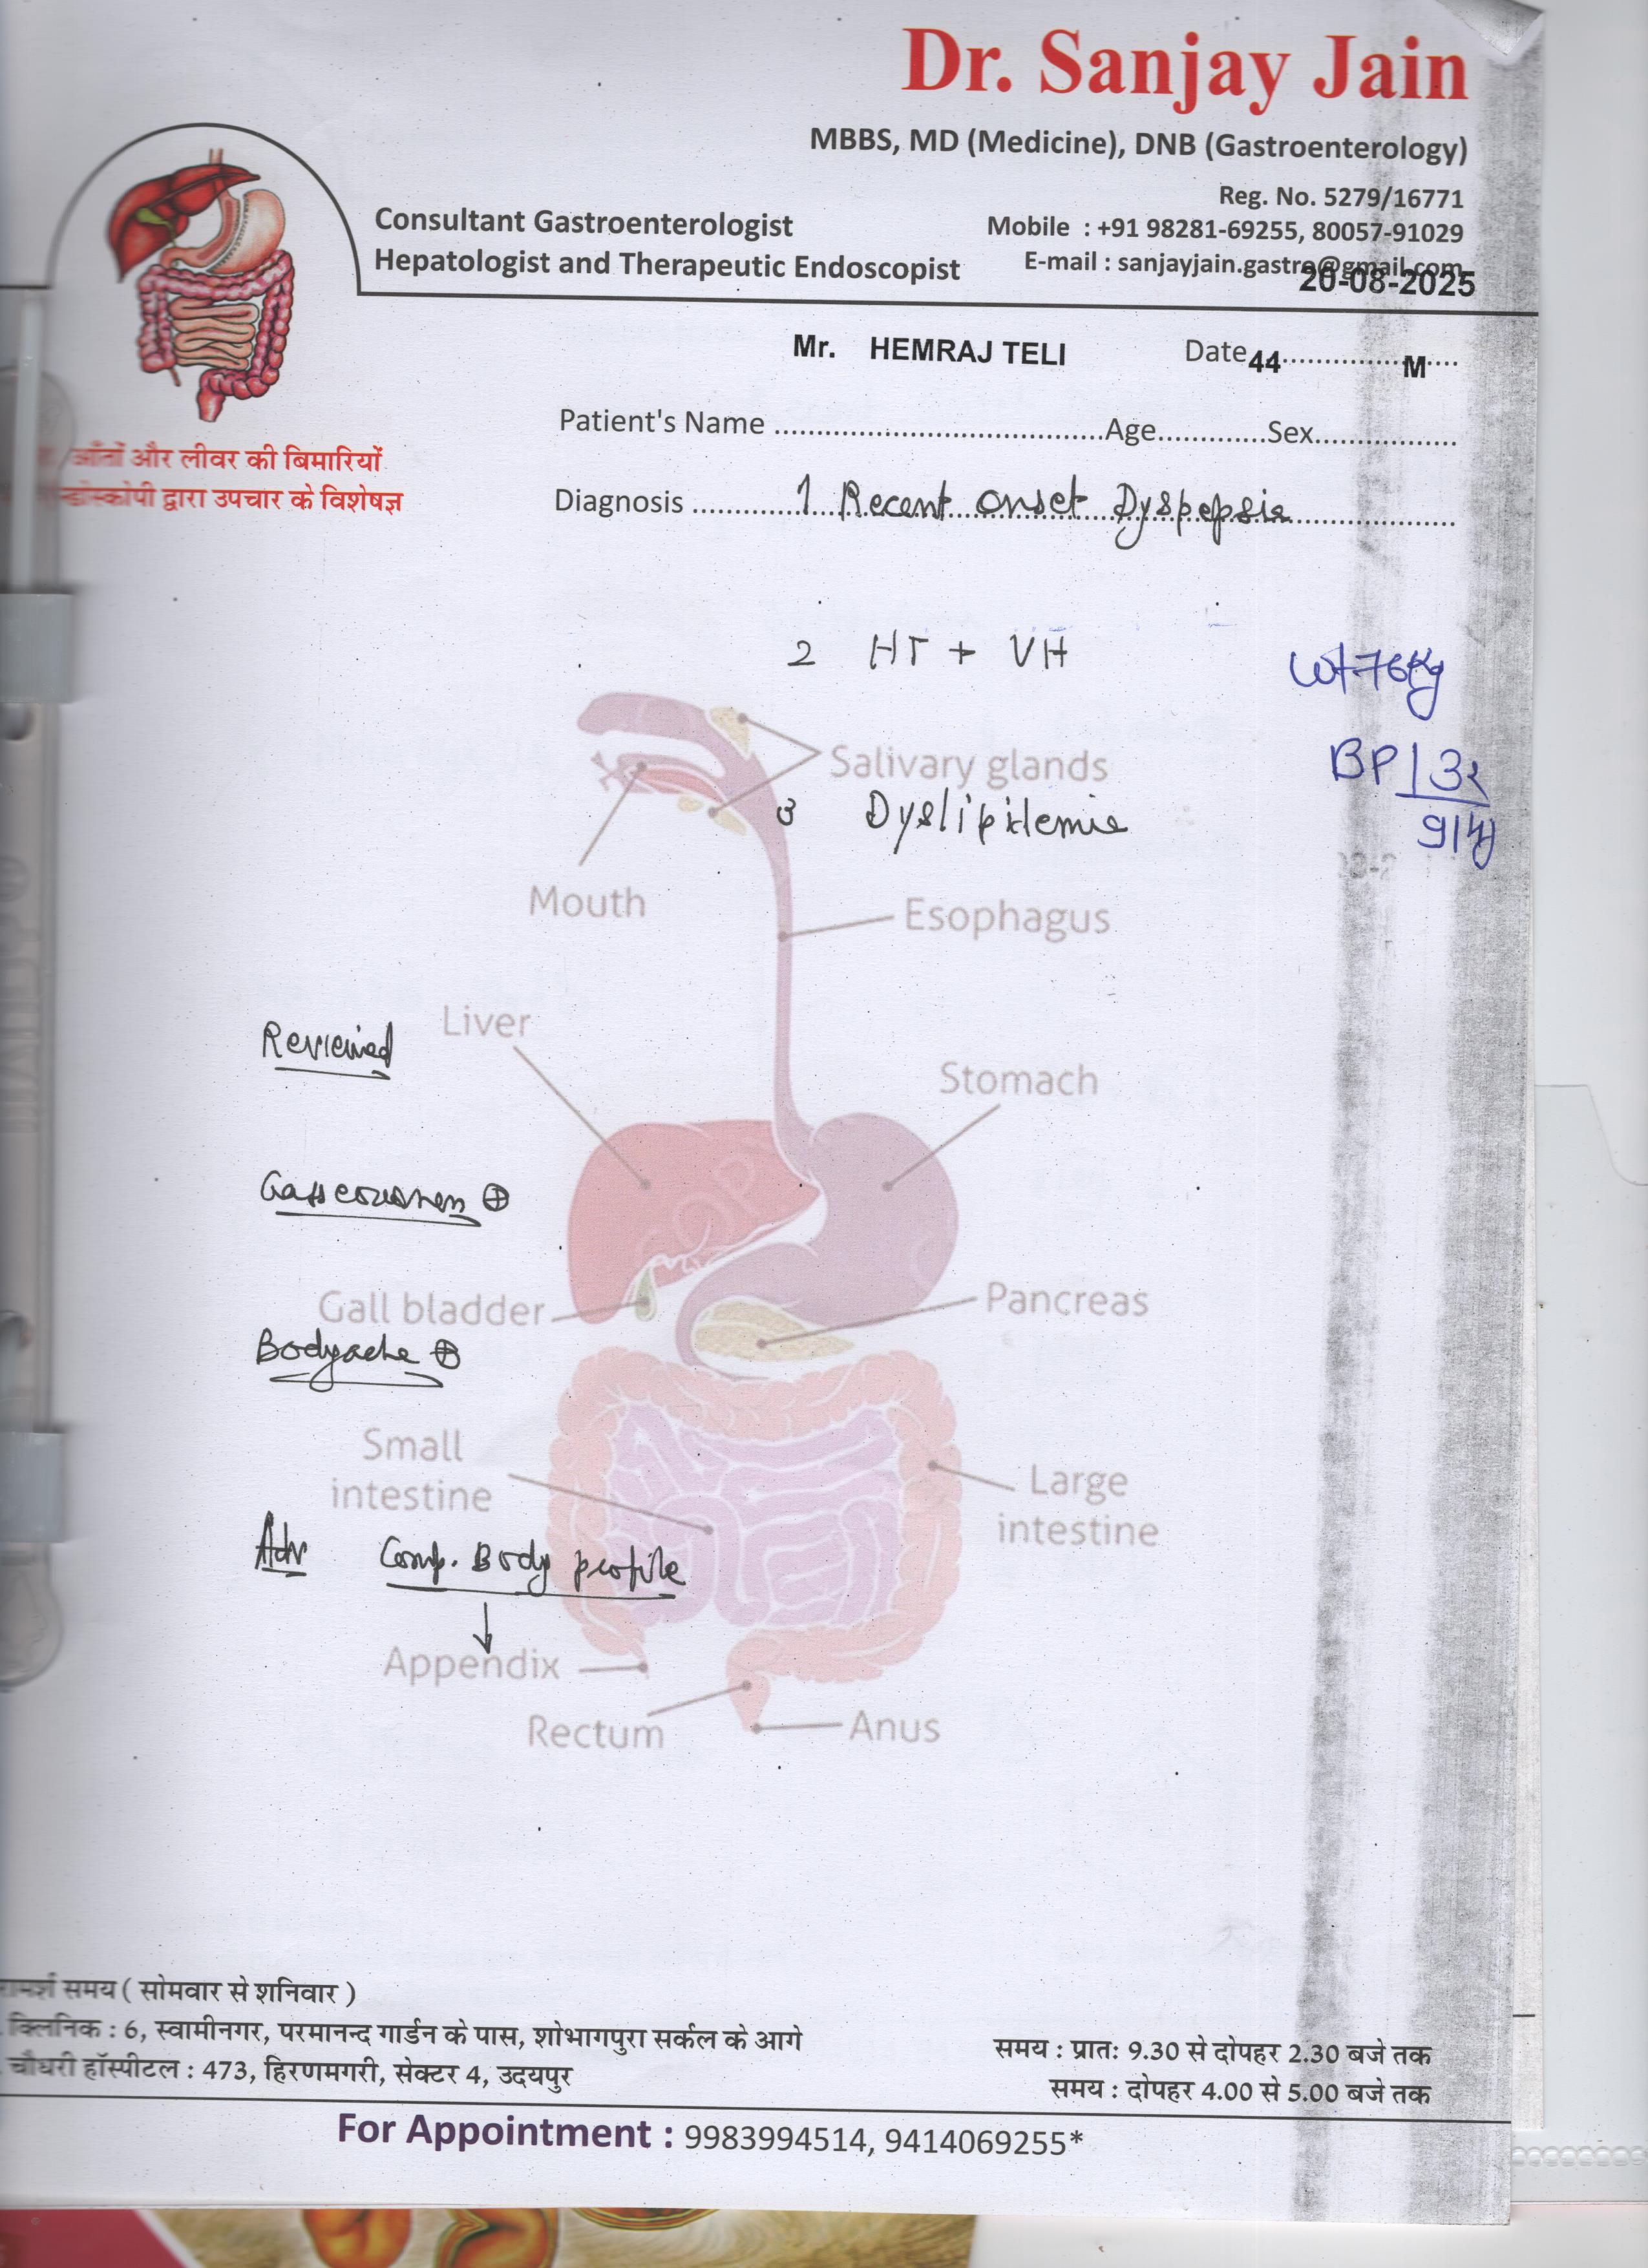 Dr. Sanjay Jain
MBBS, MD (Medicine), DNB (Gastroenterology)
Reg. No. 5279/16771
Consultant Gastroenterologist
Mobile : +91 98281-69255, 80057-91029
Hepatologist and Therapeutic Endoscopist
E-mail : sanjayjain.gastro@gmail.com
20-08-2025
Mr. HEMRAJ TELI Date 44 M
Patient's Name Age Sex
आँतों और लीवर की बिमारियों
द्वारा उपचार के विशेषज्ञ
Diagnosis 1 Recent onset Dyspepsia
2 HT + VH
Wt 76Kg
Salivary glands
BP 132
3 Dyslipidemia
Mouth
Esophagus
Liver
Reviewed
Stomach
Gall bladder
Pancreas
Bodyache ⊕
Small
intestine
Large
intestine
Adv Comp. Body profile
↓
Appendix
Rectum
Anus
समय ( सोमवार से शनिवार )
क्लिनिक : 6, स्वामीनगर, परमानन्द गार्डन के पास, शोभागपुरा सर्कल के आगे
समय : प्रातः 9.30 से दोपहर 2.30 बजे तक
चौधरी हॉस्पीटल : 473, हिरणमगरी, सेक्टर 4, उदयपुर
समय : दोपहर 4.00 से 5.00 बजे तक
For Appointment : 9983994514, 9414069255*